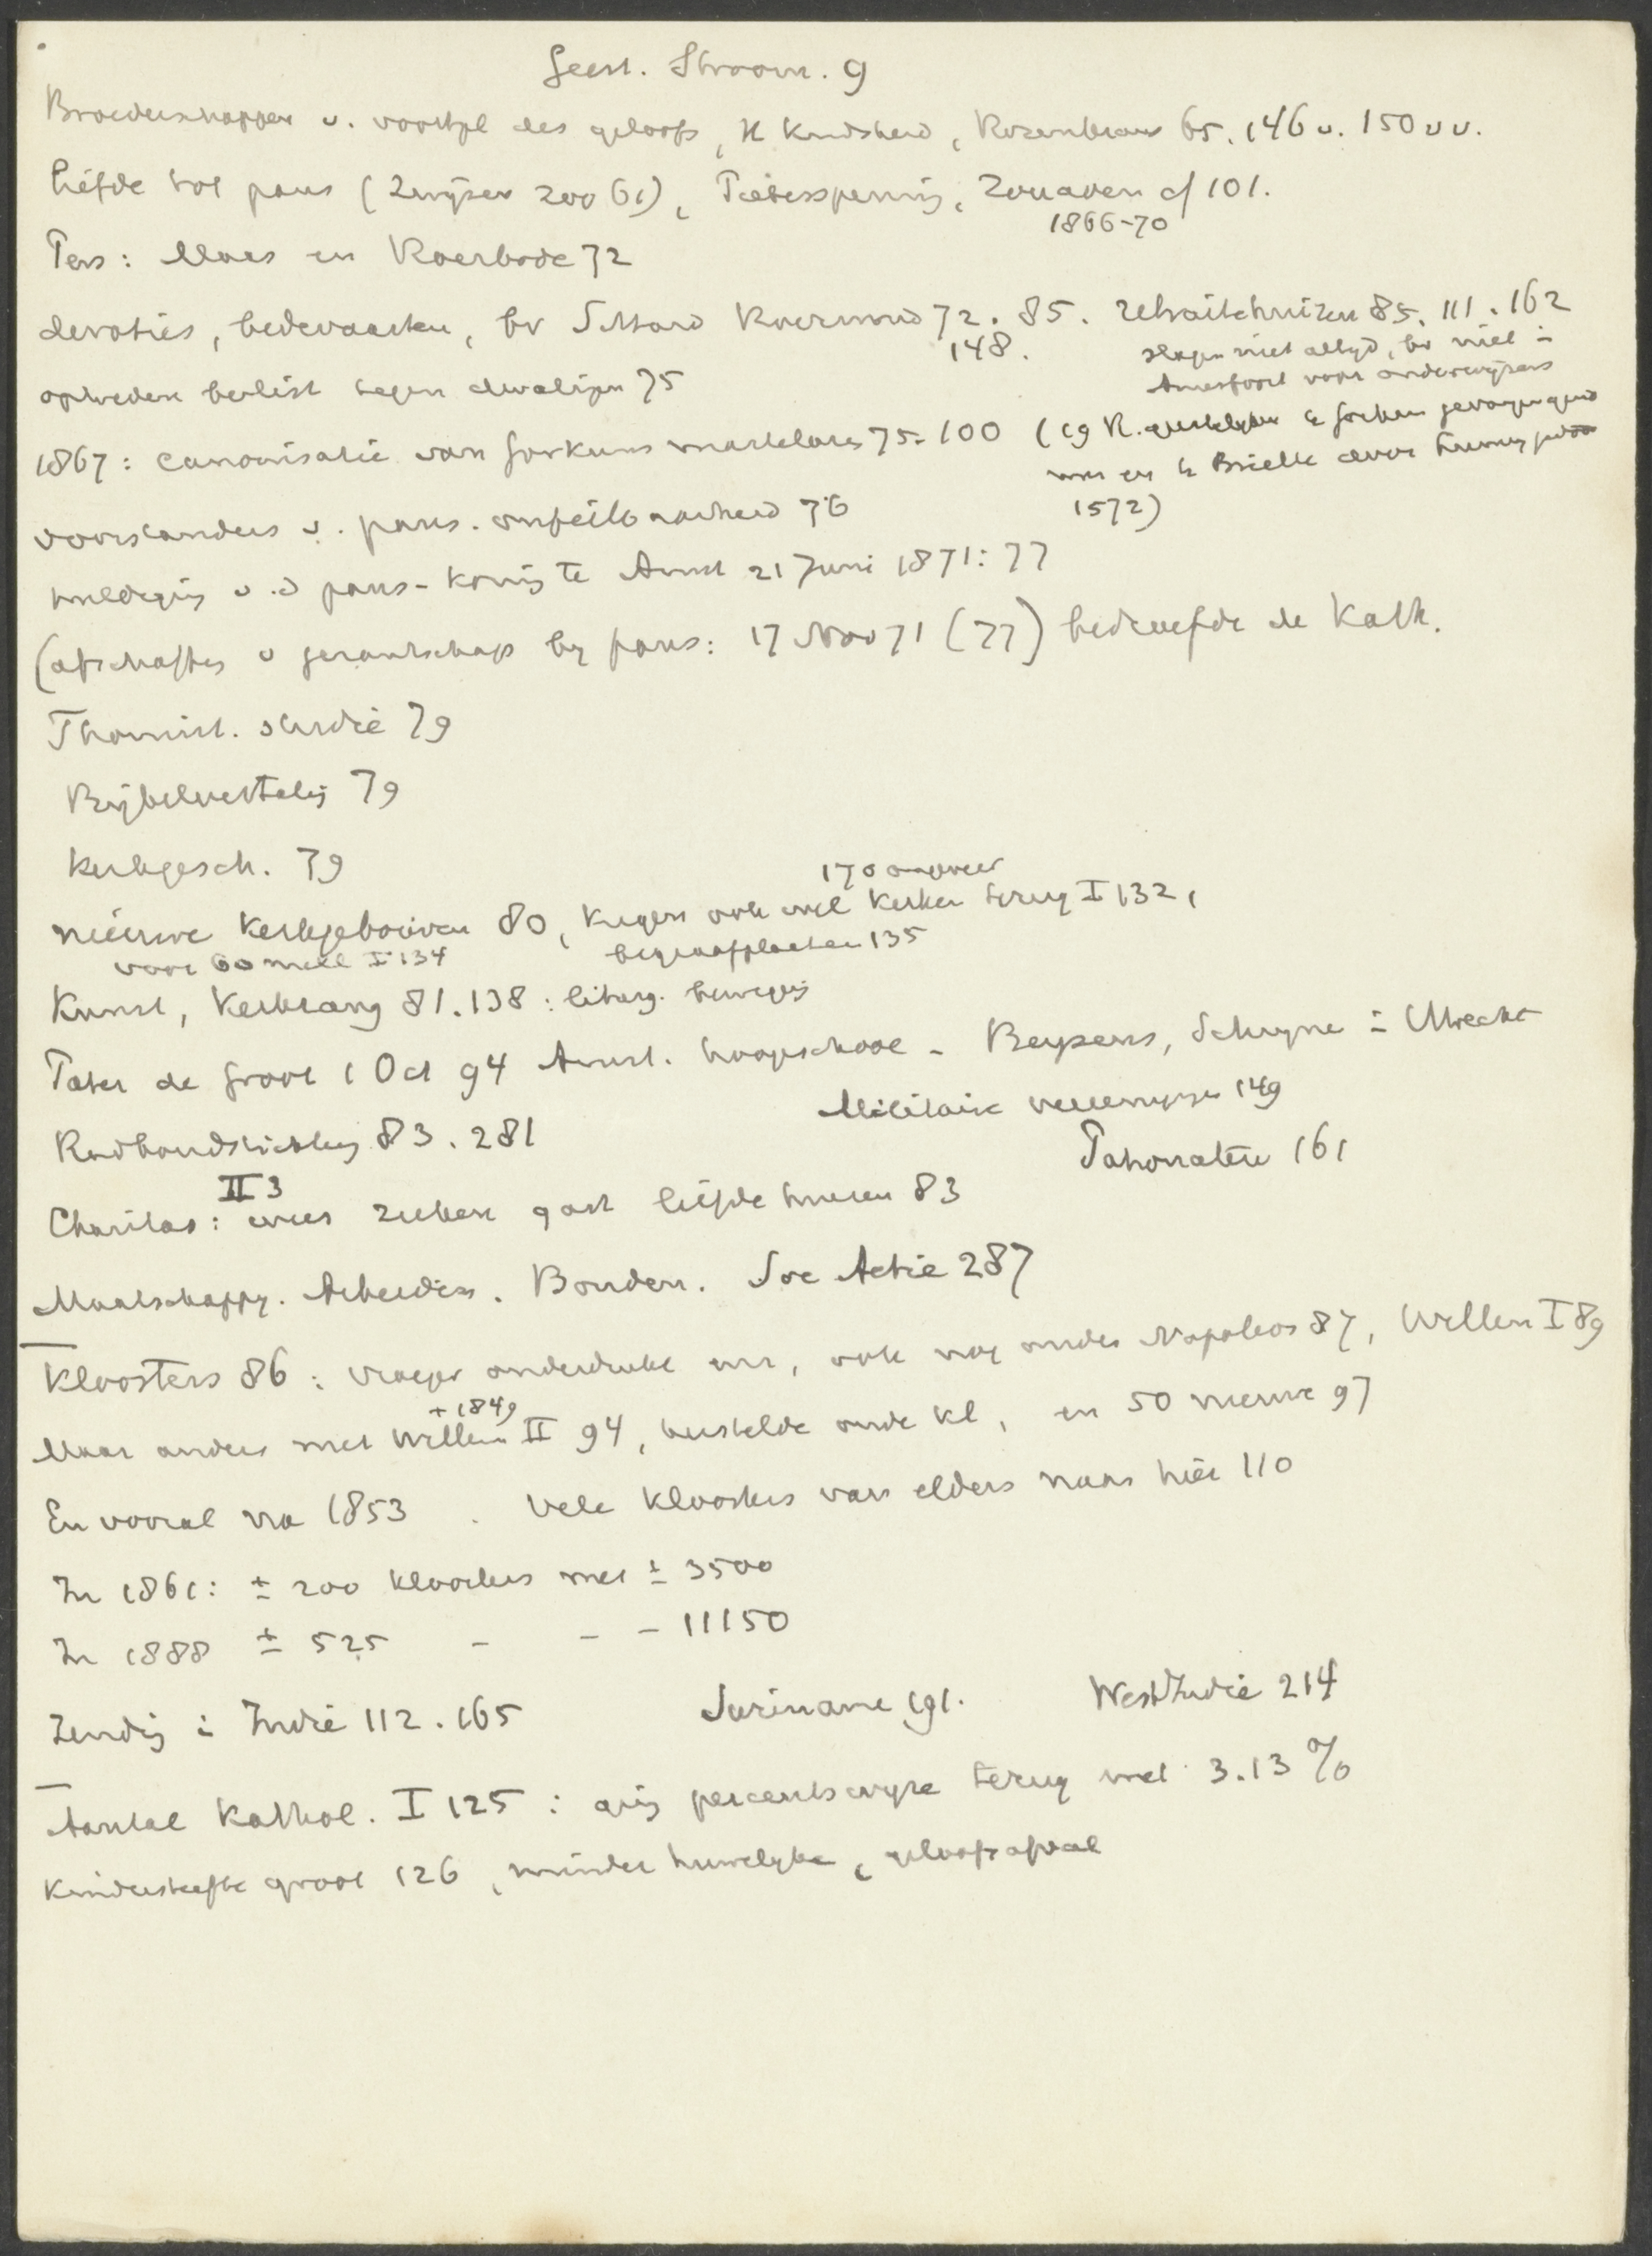 Geest. Stroom. 9
Broederschappen v. voortpl des geloofs, H Kindsheid, Rozenkrans 65. 146 v. 150 vv.
liefde tot paus (Zwijsen 200 61), Pieterspennig, Zouaven cf 101.
1866-70
Pers: Maas en Roerbode 72
devoties, bedevaarten, bv Sittard Roermond 72. 85. retraitehuizen 85. 111. 162
148.
slagen niet altijd, bv niet i
Amersfoort voor onderwijzers
optreden beslist tegen dwalingen 75
1867: canonisatie van Gorkums martelaren 75. 100 (19 R. geestelijken te Gorkum gevangen
en te Brielle door Lumey
1572)
voorstanders v. paus. onfeilbaarheid 76
huldigig v.d paus-konig te Amst 21 Juni 1871: 77
(afschaffig v gezantschap bij paus: 17 Nov 71 (77) bedroefde de Kath.
Thomist. studie 79
Bijbelvertalig 79
Kerkgesch. 79
170 ongeveer
nieuwe Kerkgebouwen 80, kregen ook veel Kerken terug I 132,
voor 60 mill I 134
begraafplaatsen 135
Kunst, Kerkzang 81. 138: liturg. bewegig
Pater de Groot 1 Oct 94 Amst. hoogeschool - Beysens, Schryne i Utrecht
Militaire vereenigigen 149
Radboudstichtig 83. 281
Patronaten 161
II 3
Charitas: wees zieken gast liefdehuizen 83
Maatschappy. Arbeiders. Bonden. Soc Actie 287
Kloosters 86: vroeger onderdrukt enz, ook nog onder Napoleon 87, Willem I 89
+ 1849
Maar anders met Willem II 94, herstelde oude kl, en 50 nieuwe 97
En vooral na 1853. Vele Kloosters van elders naar hier 110
In 1861: ± 200 kloosters met ± 3500
In 1888 ± 525 - - - 11150
Zendig i Indië 112. 165
Suriname 191.
WestIndië 214
Aantal Kathol. I 125: gig percentswyze terug met 3.13 %
Kindersterfte groot 126, minder huwelyke, geloofsafval